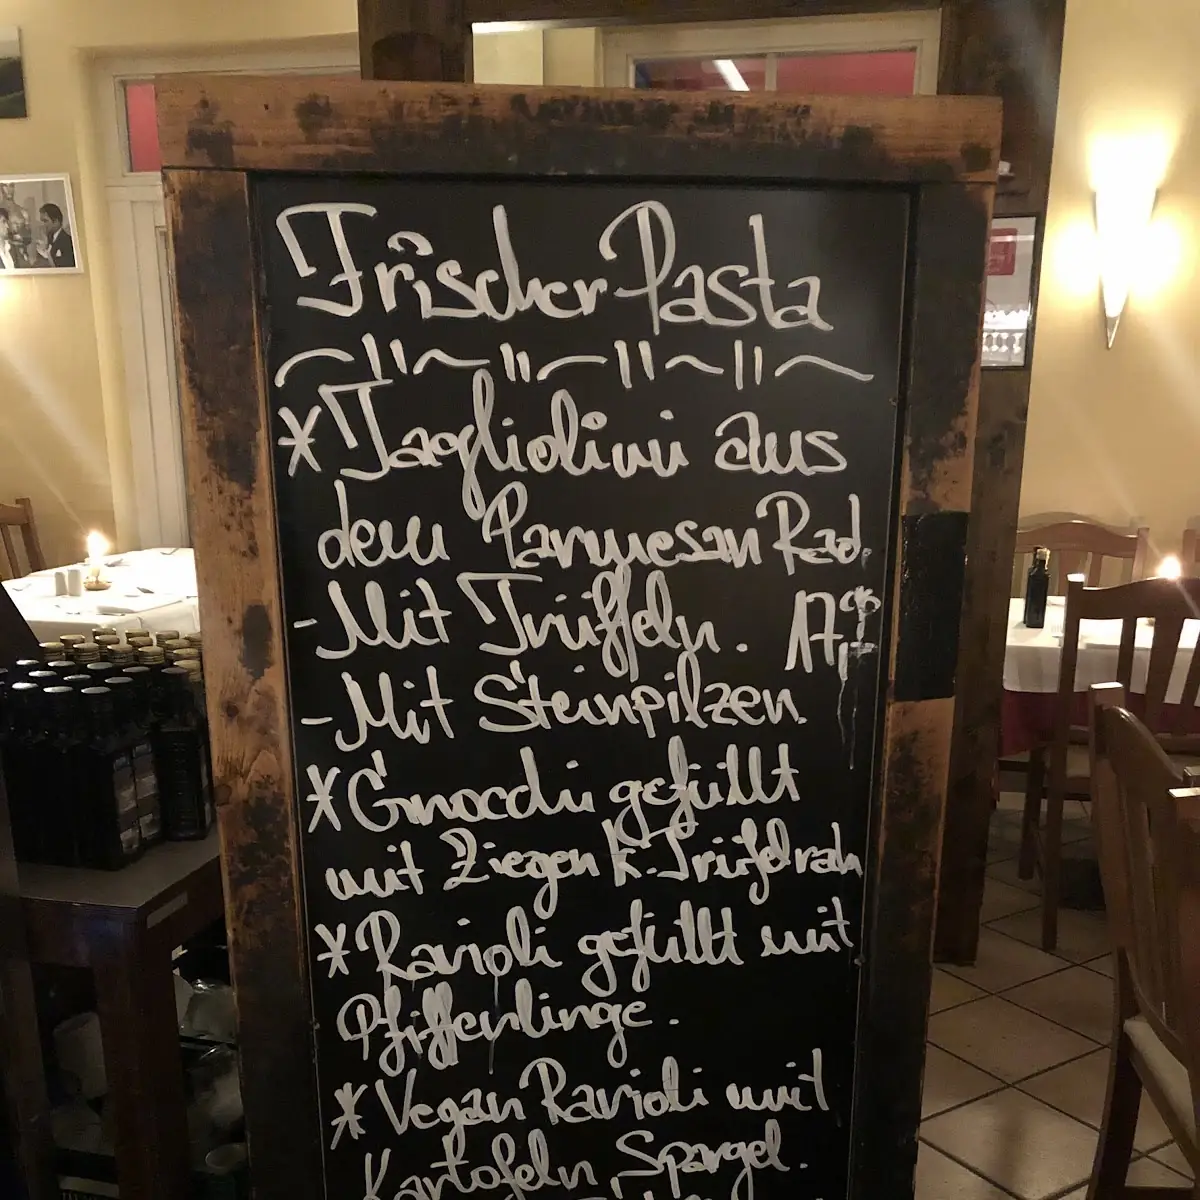 Frischer Pasta
* Tagliolini aus
dem Parmesan Rad.
- Mit Trüffeln. 17,00
- Mit Steinpilzen.
* Gnocchi gefüllt
mit Ziegen k. Trüfelrah
* Ravioli gefüllt mit
Pfifferlinge.
* Vegan Ravioli mit
Kartofeln, Spargel.